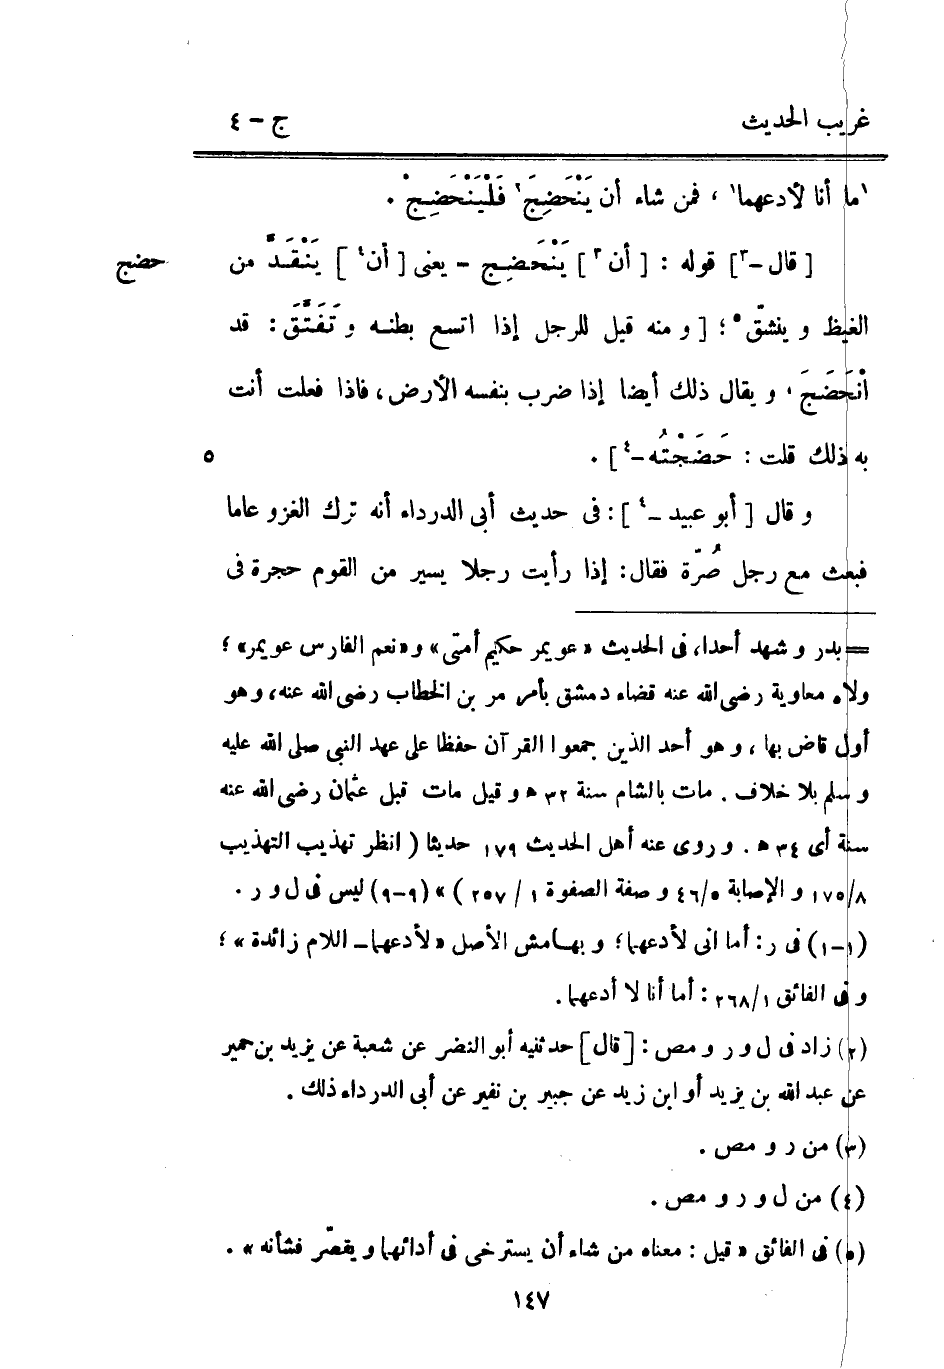 غريب الحديث ج - ٤
١ما أنا لأدعهما١ ، فمن شاء أن يَنْحَضِجَ٢ فَلْيَنْحَضِجْ .
[ قال -٣] قوله : [ أن ٣ ] يَنْحَضِج - يعنى [ أن٤ ] يَنْقَدَّ من
حضج
الغيظ و ينشقّ٥؛ [ و منه قيل للرجل إذا اتسع بطنه و تَفَتَّقَ : قد
انْحَضَجَ ، و يقال ذلك أيضا إذا ضرب بنفسه الأرض، فاذا فعلت أنت
به ذلك قلت : حَضَجْتُه -٤] . ٥
و قال [ أبو عبيد -٤ ]: فى حديث أبى الدرداء أنه ترك الغزو عاما
فبعث مع رجل صُرّة فقال: إذا رأيت رجلا يسير من القوم حجرة فى
= بدر و شهد أحدا، فى الحديث «عويمر حكيم أمتى» و«نعم الفارس عويمر» ؛
ولاه معاوية رضى الله عنه قضاء دمشق بأمر مر بن الخطاب رضى الله عنه، وهو
أول قاض بها ، و هو أحد الذين جمعوا القرآن حفظا على عهد النبى صلى الله عليه
و سلم بلا خلاف . مات بالشام سنة ٣٢ ه و قيل مات قبل عثمان رضى الله عنه
سنة أى ٣٤ ه . و روى عنه أهل الحديث ١٧٩ حديثا ( انظر تهذيب التهذيب
٨/١٧٥ و الإصابة ٥/٤٦ و صفة الصفوة ١ / ٢٥٧ ) » (٩-٩) ليس فى ل و ر .
(١-١) فى ر: أما انى لأدعهما؛ و بهامش الأصل «لأدعهما - اللام زائدة » ؛
و فى الفائق ١/٢٦٨ : أما أنا لا أدعهما .
(٢) زاد فى ل و ر و مص : [ قال ] حدثنيه أبو النضر عن شعبة عن يزيد بن خمير
عن عبد الله بن يزيد أو ابن زيد عن جبير بن نفير عن أبى الدرداء ذلك .
(٣) من ر و مص .
(٤) من ل و ر و مص .
(٥) فى الفائق « قيل : معناه من شاء أن يسترخى فى أدائهما و يقصّر فشأنه » .
١٤٧